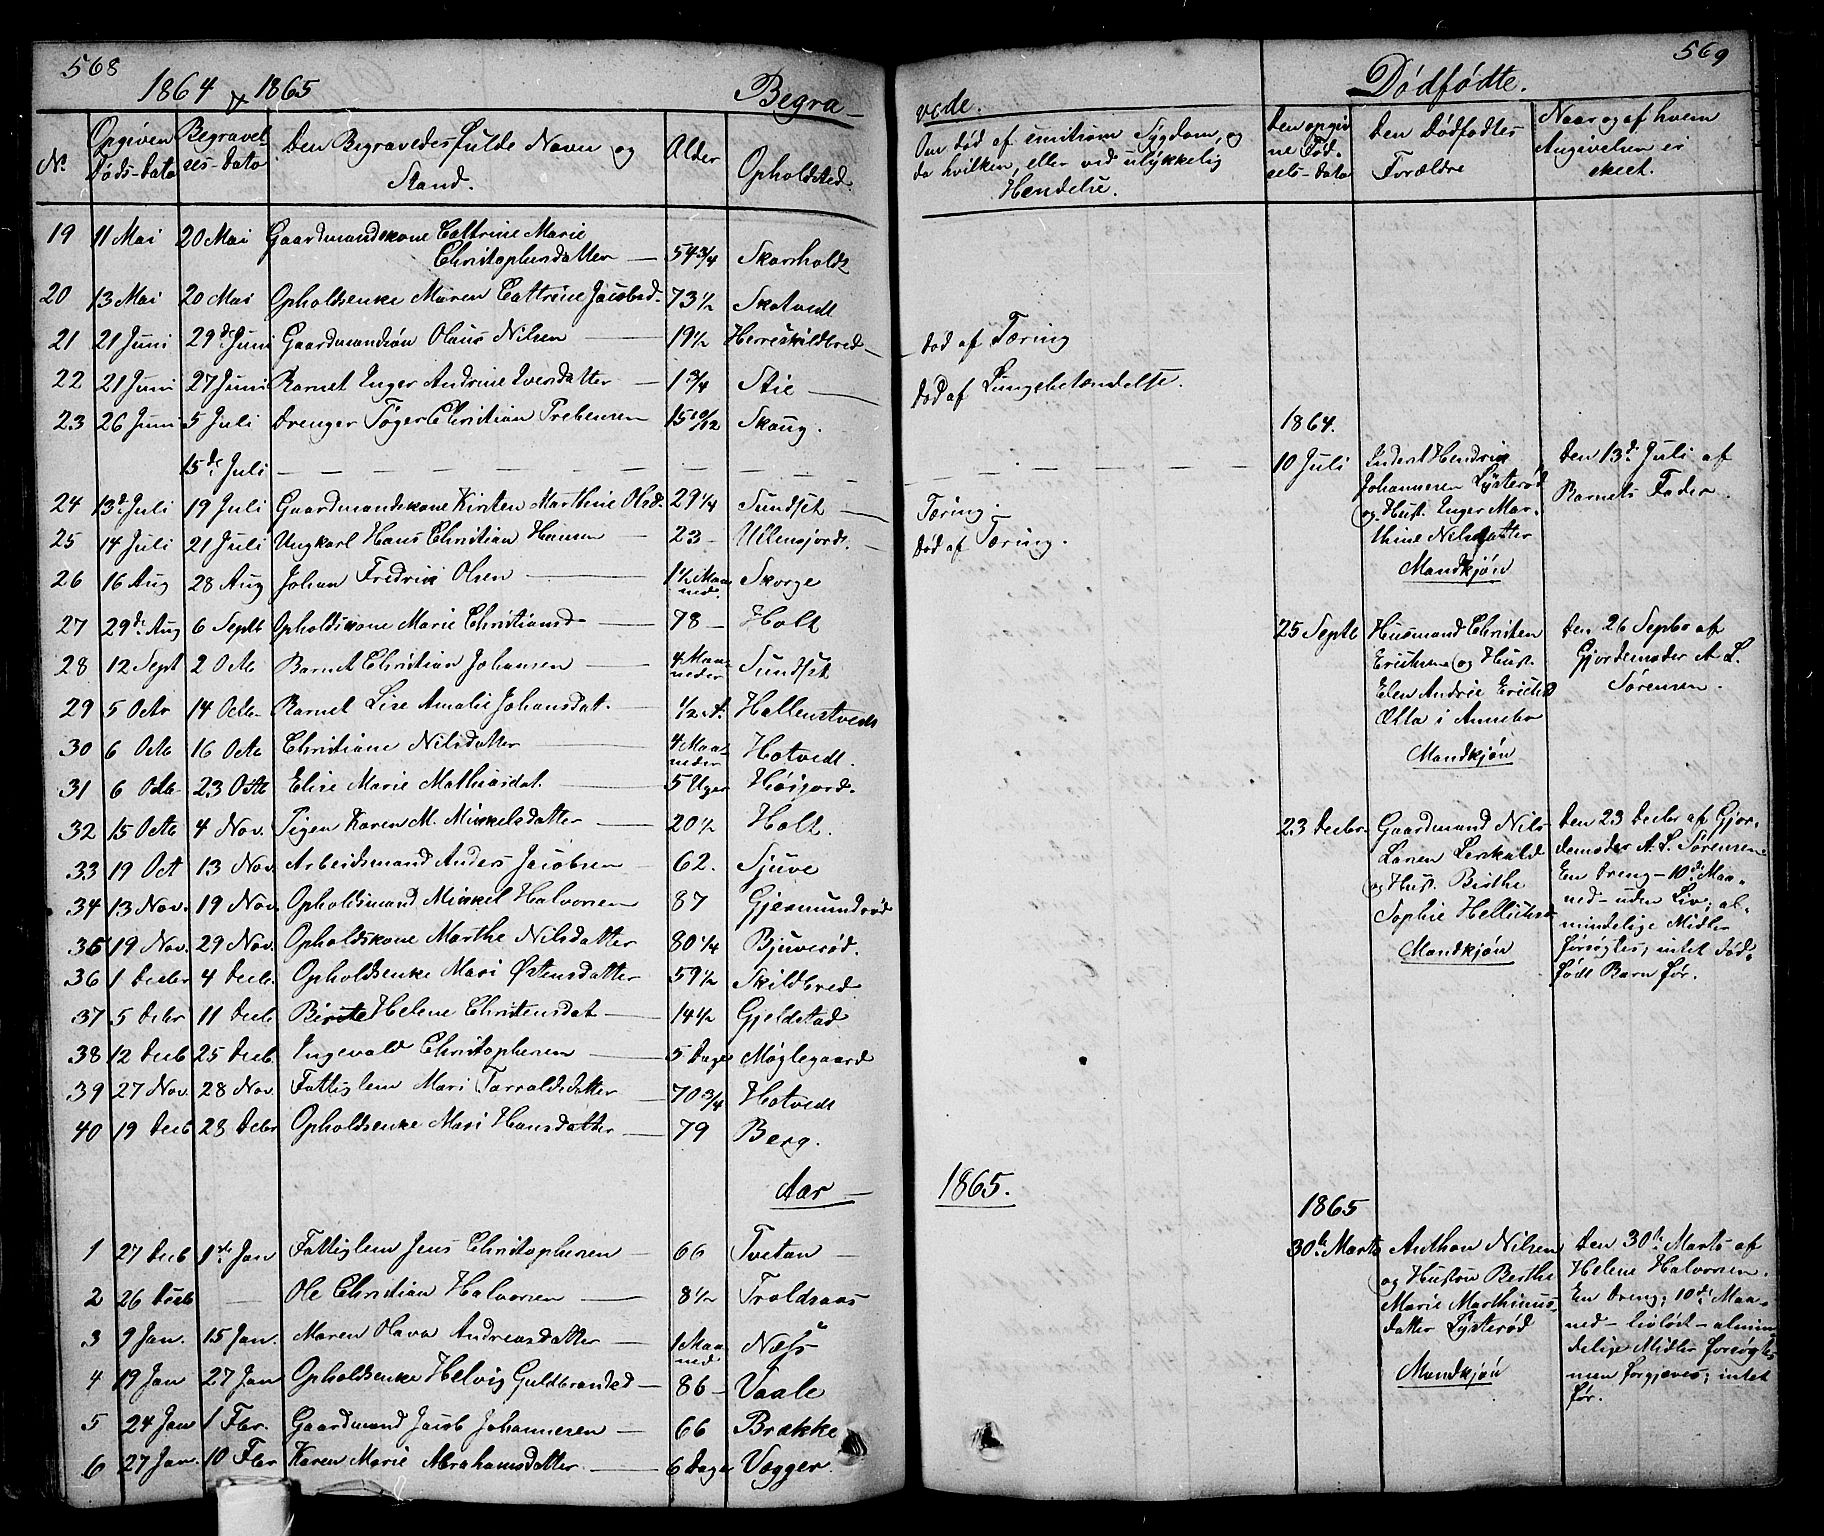 568
1864 & 1865
Begra-
No.
Opgiven Døds-Dato
Begravelses-Dato
Den Begravedes fulde Navn og Stand.
Alder
Opholdsted.
19 11 Mai 20 Mai Gaardmandskone Cathrine Marie
Christophersdatter — 54 3/4 Skarsholdt
20 13 Mai 20 Mai Opholdsenke Maren Cathrine Jacobsd. 73 1/2 Skotvedt
21 21 Juni 29de Juni Gaardmandsøn Olaus Nilsen — 19 1/2 Herreskildbred
22 21 Juni 27 Juni Barnet Inger Andrine Iversdatter — 1 3/4 Stie —
23 26 Juni 5 Juli Drenger Tøger Christian Prebensen 15 10/12 Skaug.
15de Juli — — — — — —
24 13d Juli 19 Juli Gaardmandskone Kirsten Marthine Olsd. 29 1/4 Sundset —
25 14 Juli 21 Juli Ungkarl Hans Christian Hansen — 23 - Ullensjordt.
26 16 Aug 28 Aug Johan Fredrik Olsen — 1 1/2 Maaned. Skorge
27 29de Aug 6 Septb Opholdskone Marie Christiansd — 78 — Holt
28 12 Sept 2 Octb Barnet Christian Johansen — 4 Maaneder Sundset
29 5 Octr 14 Octb. Barnet Lise Amalie Johansdat. — 1/2 A. Hallenstvedt
30 6 Octb 16 Octb Christiane Nilsdatter — 4 Maaneder Hotvedt.
31 6 Octb. 23 Octb Elise Marie Mathiasdat. — 5 Uger Høijord.
32 15 Octb 4 Nov. Pigen Karen M. Mikkelsdatter — 20 1/2 Holt.
33 19 Oct 13 Nov. Arbeidsmand Anders Jacobsen — 62. Sjuve
34 13 Nov. 19 Nov. Opholdsmand Mikkel Halvorsen — 87 Gjermundrød
35 19 Nov. 29 Nov. Opholdskone Marthe Nilsdatter 80 1/4 Bjuverød.
36 1 Decbr 4 Decb. Opholdsenke Mari Østensdatter 59 1/2 Skildbred
37 5 Debr 11 Decb Birte Helene Christensdat — 14 1/2 Gjeldstad
38 12 Decb 25 Decb. Ingevald Christophersen — 5 Dage Møglegaard
39 27 Nov. 28 Nov. Fattiglem Mari Tarraldsdatter — 70 3/4 Hotvedt
40 19 Decb 28 Debr Opholdsenke Mari Hansdatter — 79 Berg.
Aar —
1 27 Decb 1ste Jan Fattiglem Jens Christophersen — 66 Tvetan —
2 26 Decb — Ole Christian Halvorsen — 8 1/2 Troldsaas
3 9 Jan. 15 Jan. Maren Olava Andreasdatter — 1 Maaned Næss
4 19 Jan 27 Jan Opholdsenke Helvig Guldbrandsd — 86 — Vaale
5 24 Jan 1 Fbr. Gaardmand Jacob Johannesen — 66 Brække
6 27 Jan. 10 Fbr Karen Marie Abrahamsdatter. — 6 Dage Vegger
569
vede.
Dødfødte.
Om død af smitsom Sygdom, og
da hvilken, eller ved ulykkelig
Hendelse.
Den opgivne Fødsels-Dato
Den Dødfødtes
Forældre
Naar og af hvem
Angivelsen er
skeet.
— død af Tæring
død af Lungebetændelse.
Tæring —
Død af Tæring.
1864.
10 Juli
Inderst Hendrik
Johannesen Lysterød
og Hust. Inger Mar-
thine Nilsdatter
Mandkjøn
Den 13de Juli af
Barnets Fader
25 Septb
Husmand Christen
Ericksen og Hust.
Elen Andrie Ericksd
Ætta i Annebo
Mandkjøn
Den 26 Septb af
Gjordemoder A L.
Sørensen.
23 Decbr.
Gaardmand Nils
Larsen Leskald
og Hust. Birthe
Sophie Helliksd
Mandkjøn
Den 23 Decbr af Gjor-
demoder A. L. Sørensen
En Dreng — 10de Maa-
ned — uden Liv; al-
mindelige Midler
forsøgtes; intet død-
født Barn før.
1865.
1865
30te Marts
Anthon Nilsen
og Hustru Berthe
Marie Marthinus-
datter Lysterød
Mandkjøn
Den 30te Marts af
Helene Halvorsen.
En Dreng; 10de Maa-
ned — livløst — almin
delige Midler forsøgtes
men forgjæves; intet
før.